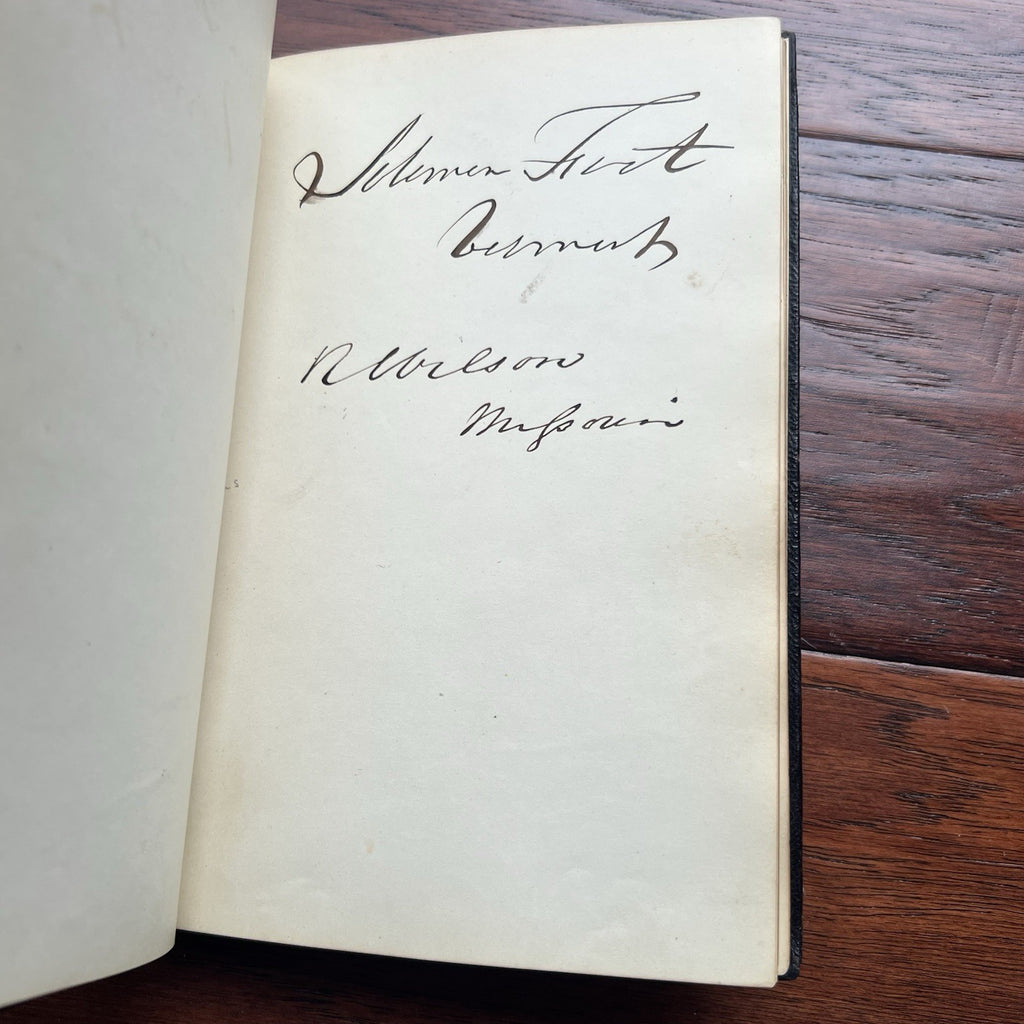 Solomon Foot
Vermont
R Wilson
Missouri